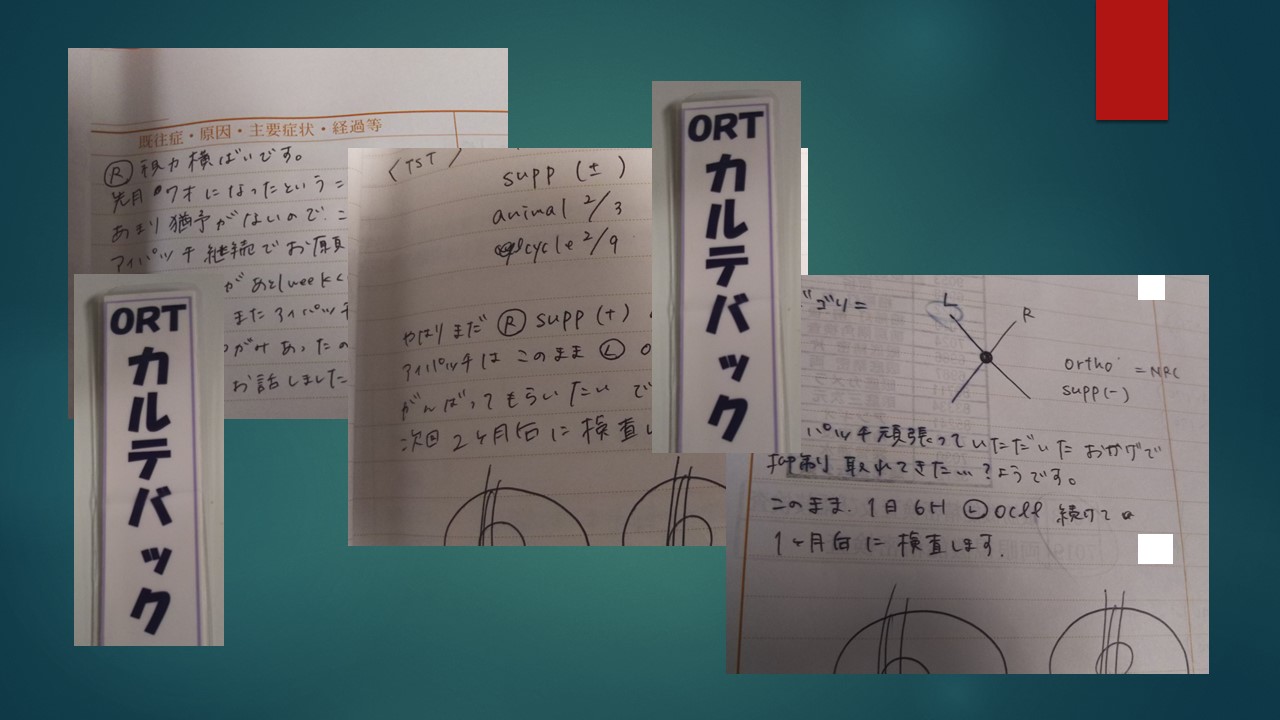 既往症・原因・主要症状・経過等
Ⓡ 視力横ばいです。
先月 ワオになったという
あまり猶予がないので、こ
アイパッチ継続でお願
があと1week
また アイパッチ
がみあったの
お話しました
ORT
カルテバック
<TST>
supp (±)
animal 2/3
cycle 2/9
やはりまだ Ⓡ supp (+)
アイパッチは このまま Ⓛ o
がんばってもらいたい で
次回 2ヶ月后に 検査し
ORT
カルテバック
ゴリ=
L
R
ortho = NRC
supp(-)
パッチ頑張っていただいた おかげで
抑制 取れてきた…?ようです。
このまま、1日 6H Ⓛ occl 続けて
1ヶ月后に 検査します.